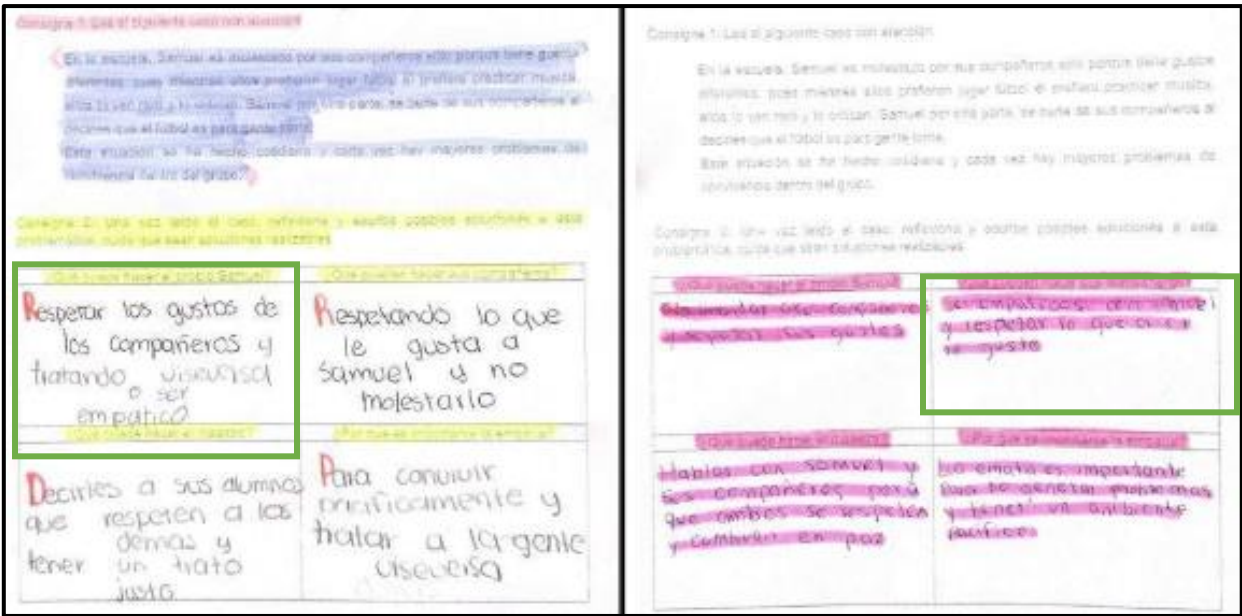 Consigna 1: Lea el siguiente caso con atención
En la escuela, Samuel es molestado por sus compañeros sólo porque tiene gustos
diferentes, pues mientras ellos prefieren jugar fútbol él prefiere practicar música,
ellos lo ven raro y lo critican. Samuel por otra parte, se burla de sus compañeros al
decirles que el fútbol es para gente tonta.
Esta situación se ha hecho cotidiana y cada vez hay mayores problemas de
convivencia dentro del grupo.
Consigna 2: Una vez leído el caso, reflexiona y escribe posibles soluciones a esta
problemática, cuida que sean soluciones realizables
¿Qué puede hacer el propio Samuel?
¿Qué pueden hacer sus compañeros?
Respetar los gustos de
los compañeros y
tratando viseversa
o ser
empatico
Respetando lo que
le gusta a
Samuel y no
molestarlo
¿Qué puede hacer el maestro?
¿Por qué es importante la empatía?
Decirles a sus alumnos
que respeten a los
demas y
tener un trato
justo
Para convivir
pacificamente y
tratar a la gente
viseversa
Consigna 1: Lea el siguiente caso con atención
En la escuela, Samuel es molestado por sus compañeros sólo porque tiene gustos
diferentes, pues mientras ellos prefieren jugar fútbol él prefiere practicar música,
ellos lo ven raro y lo critican. Samuel por otra parte, se burla de sus compañeros al
decirles que el fútbol es para gente tonta.
Esta situación se ha hecho cotidiana y cada vez hay mayores problemas de
convivencia dentro del grupo.
Consigna 2: Una vez leído el caso, reflexiona y escribe posibles soluciones a esta
problemática, cuida que sean soluciones realizables
¿Qué puede hacer el propio Samuel?
compañeros
y respetar sus gustos
Ser empaticos con Samuel
y respetar lo que a el
le gusta
¿Qué puede hacer el maestro?
¿Por qué es importante la empatía?
Hablar con Samuel y
sus compañeros para
que ambos se respeten
y combivan en paz
La ematia es importante
para no generar problemas
y tener un ambiente
pacifico